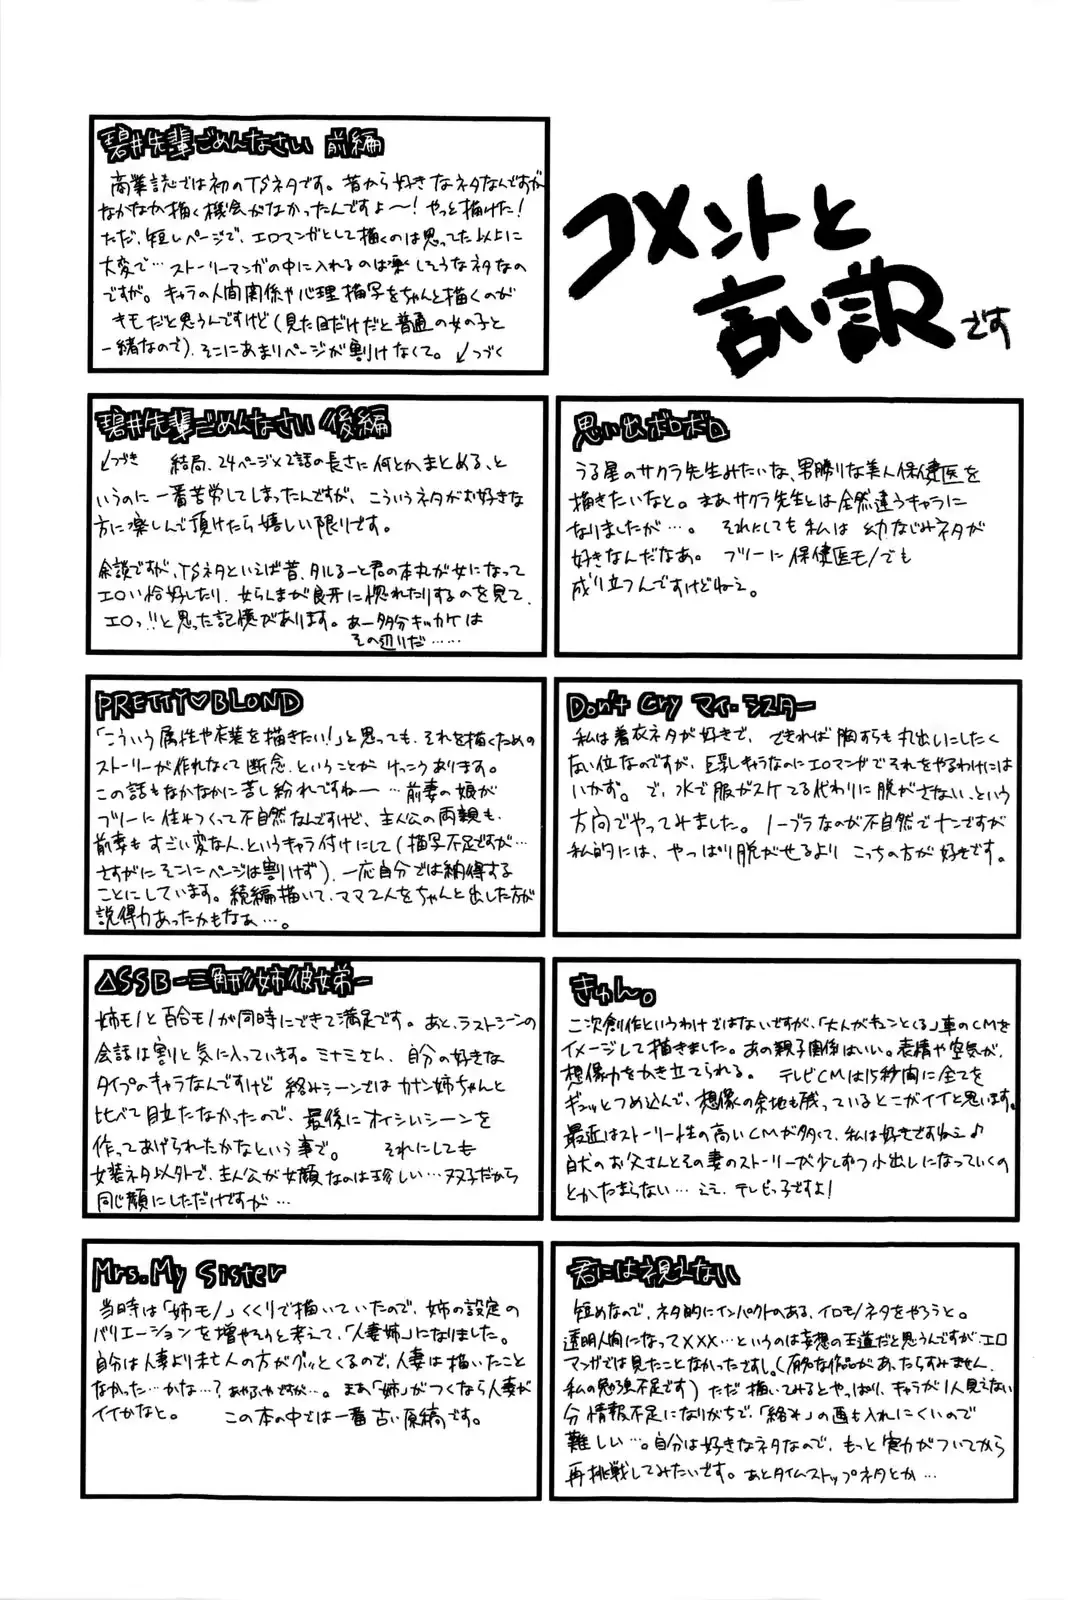 コメントと
言い訳です
碧井先輩ごめんなさい 前編
商業誌では初のTSネタです。昔から好きなネタなんですが
なかなか描く機会がなかったんですよ〜!やっと描けた!
ただ、短いページで、エロマンガとして描くのは思ってた以上に
大変で…ストーリーマンガの中に入れるのは楽しそうなネタなの
ですが。キャラの人間関係や心理描写をちゃんと描くのが
キモだと思うんですけど(見た目だけだと普通の女の子と
一緒なので)、そこにあまりページが割けなくて。↙つづく
碧井先輩ごめんなさい 後編
↙つづき 結局、24ページ×2話の長さに何とかまとめる、と
いうのに一番苦労してしまったんですが、こういうネタがお好きな
方に楽しんで頂けたら嬉しい限りです。
余談ですが、TSネタといえば昔、タルるーと君の本丸が女になって
エロい恰好したり、女らんまが良牙に惚れたりするのを見て、
エロっ!!と思った記憶があります。あー多分キッカケは
その辺りだ……
思い出ボロボロ
うる星のサクラ先生みたいな、男勝りな美人保健医を
描きたいなと。まあサクラ先生とは全然違うキャラに
なりましたが…。それにしても私は幼なじみネタが
好きなんだなあ。フツーに保健医モノでも
成り立つんですけどねえ。
PRETTY♡BLOND
「こういう属性や衣装を描きたい!」と思っても、それを描くための
ストーリーが作れなくて断念、ということがけっこうあります。
この話もなかなかに苦し紛れですね〜…前妻の娘が
フツーに住みつくって不自然なんですけど、主人公の両親も
前妻もすごい変な人、というキャラ付けにして(描写不足ですが…
さすがにそこにページは割けず)、一応自分では納得する
ことにしています。続編描いて、ママ2人をちゃんと出した方が
説得力あったかもなぁ…。
Don't Cry マイ・シスター
私は着衣ネタが好きで、できれば胸すらも丸出しにしたく
ない位なのですが、巨乳キャラなのにエロマンガでそれをやるわけには
いかず。で、水で服がスケてる代わりに脱がさない、という
方向でやってみました。ノーブラなのが不自然でナンですが
私的には、やっぱり脱がせるよりこっちの方が好きです。
△SSB-三角形姉彼弟-
姉モノと百合モノが同時にできて満足です。あと、ラストシーンの
会話は割と気に入っています。ミナミさん、自分の好きな
タイプのキャラなんですけど絡みシーンではカナン姉ちゃんと
比べて目立たなかったので、最後にオイシいシーンを
作ってあげられたかなという事で。それにしても
女装ネタ以外で、主人公が女顔なのは珍しい…双子だから
同じ顔にしただけですが…
きゅん。
二次創作というわけではないですが、「大人がキュンとくる」車のCMを
イメージして描きました。あの親子関係はいい。表情や空気が、
想像力をかき立てられる。テレビCMは15秒間に全てを
ギュッとつめ込んで、想像の余地も残っているとこがイイと思います。
最近はストーリー性の高いCMが多くて、私は好きですねえ♪
白犬のお父さんとその妻のストーリーが少しずつ小出しになっていくの
とかたまらない…ええ、テレビっ子ですよ!
Mrs. My Sister
当時は「姉モノ」くくりで描いていたので、姉の設定の
バリエーションを増やそうと考えて、「人妻姉」になりました。
自分は人妻より未亡人の方がグッとくるので、人妻は描いたこと
なかった…かな…?あやふやですが…。まあ「姉」がつくなら人妻が
イイかなと。この本の中では一番古い原稿です。
君には視えない
短めなので、ネタ的にインパクトのある、イロモノネタをやろうと。
透明人間になって×××…というのは妄想の王道だと思うんですが、エロ
マンガでは見たことなかったですし。(有名な作品があったらすみません、
私の勉強不足です)ただ描いてみるとやっぱり、キャラが1人見えない
分情報不足になりがちで、「絡み」の画も入れにくいので
難しい…。自分は好きなネタなので、もっと実力がついてから
再挑戦してみたいです。あとタイムストップネタとか…